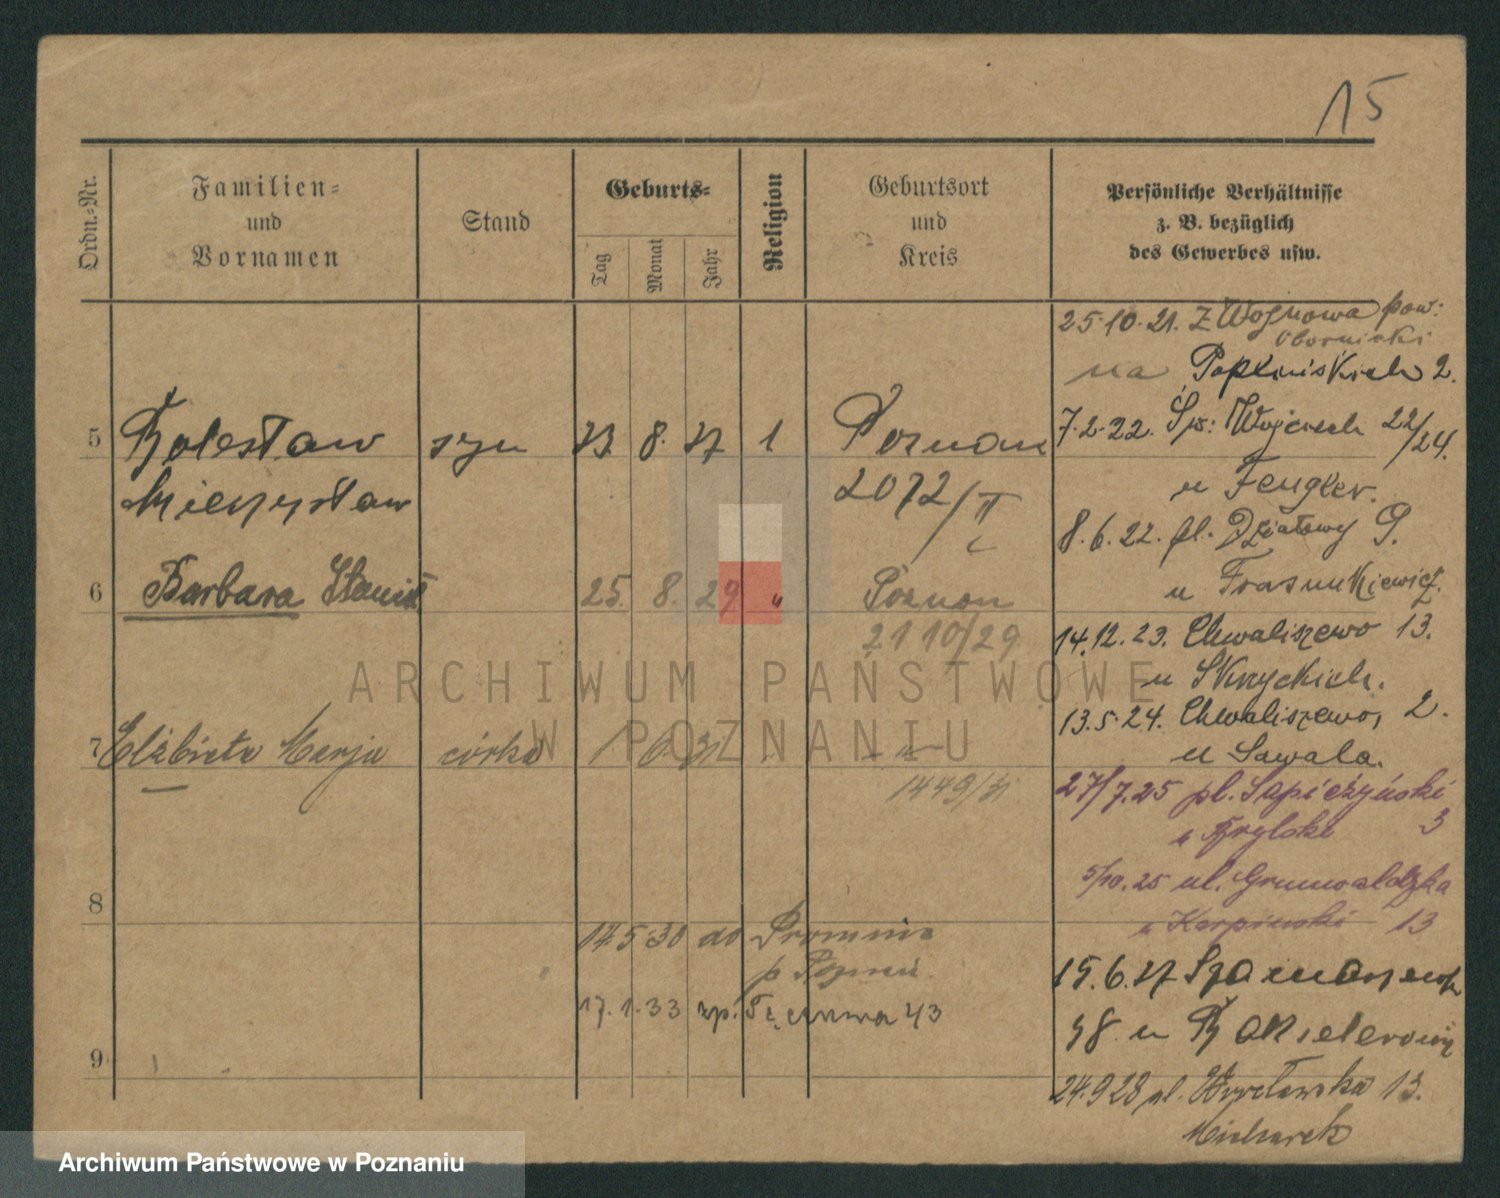 15
Ordn.-Nr.
Familien-
und
Vornamen
Stand
Geburts-
Tag
Monat
Jahr
Religion
Geburtsort
und
Kreis
Persönliche Verhältnisse
z. B. bezüglich
des Gewerbes usw.
25.10.21. Z Wojnowa pow:
Obornicki
na Poplińskich 2.
5 Bolesław syn 8. 27 1 Poznań
Mieczysław 2072/II
7.2.22. Św: Wojciech 22/24.
u Fengler.
8.6.22. pl. Działowy 9.
u Frasunkiewicz.
6 Barbara 25. 8. 29 " Poznań
2110/29
14.12.23. Chwaliszewo 13.
u
13.5.24. Chwaliszewo, 2.
u Sawala.
7 Elżbieta Marja córka 1 6 31 - " -
1449/31
27/7.25 pl. Sapieżyński
3
5/10.25 ul. Grunwaldzka
u Karpiński 13
8
14.5.30 do Promnic
p Pozn.
15.6.27
u
17.1.33 43
9
24.9.28 ul. Wrocławska 13.
Michurek
ARCHIWUM PAŃSTWOWE
W POZNANIU
Archiwum Państwowe w Poznaniu